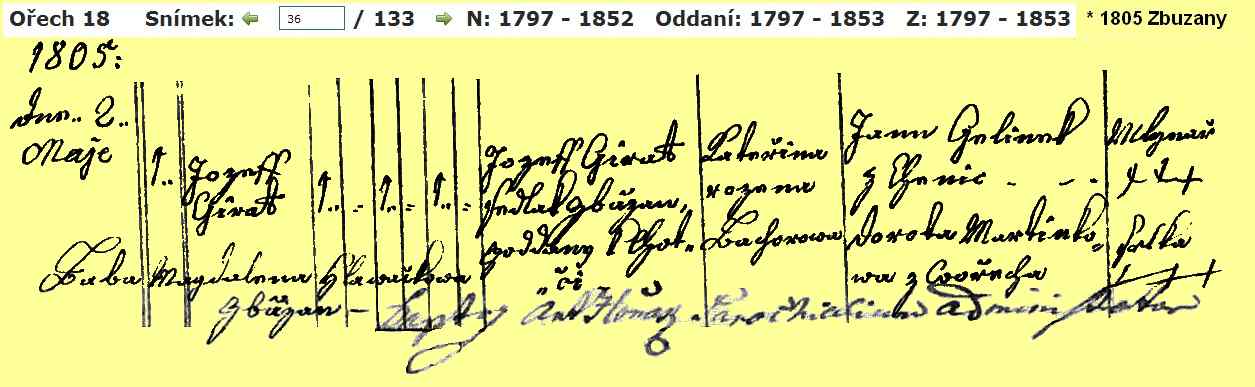 Ořech 18 Snímek: 36 / 133 N: 1797 - 1852 Oddaní: 1797 - 1853 Z: 1797 - 1853 * 1805 Zbuzany
1805:
Dne.. 2..
Maje
1..
Jozeff
Girat
1.. 1.. 1..
Jozeff Girat
sedlak Zbůzan,
poddany
Kateřina
rozena
Bachorowa
Jann Gelinek
z
Dorota Martinko-
wa z Wořecha
Mlynař
+++
Selka
+++
Baba Magdalena Hlawačkowa
Zbůzan - Ant Administrator